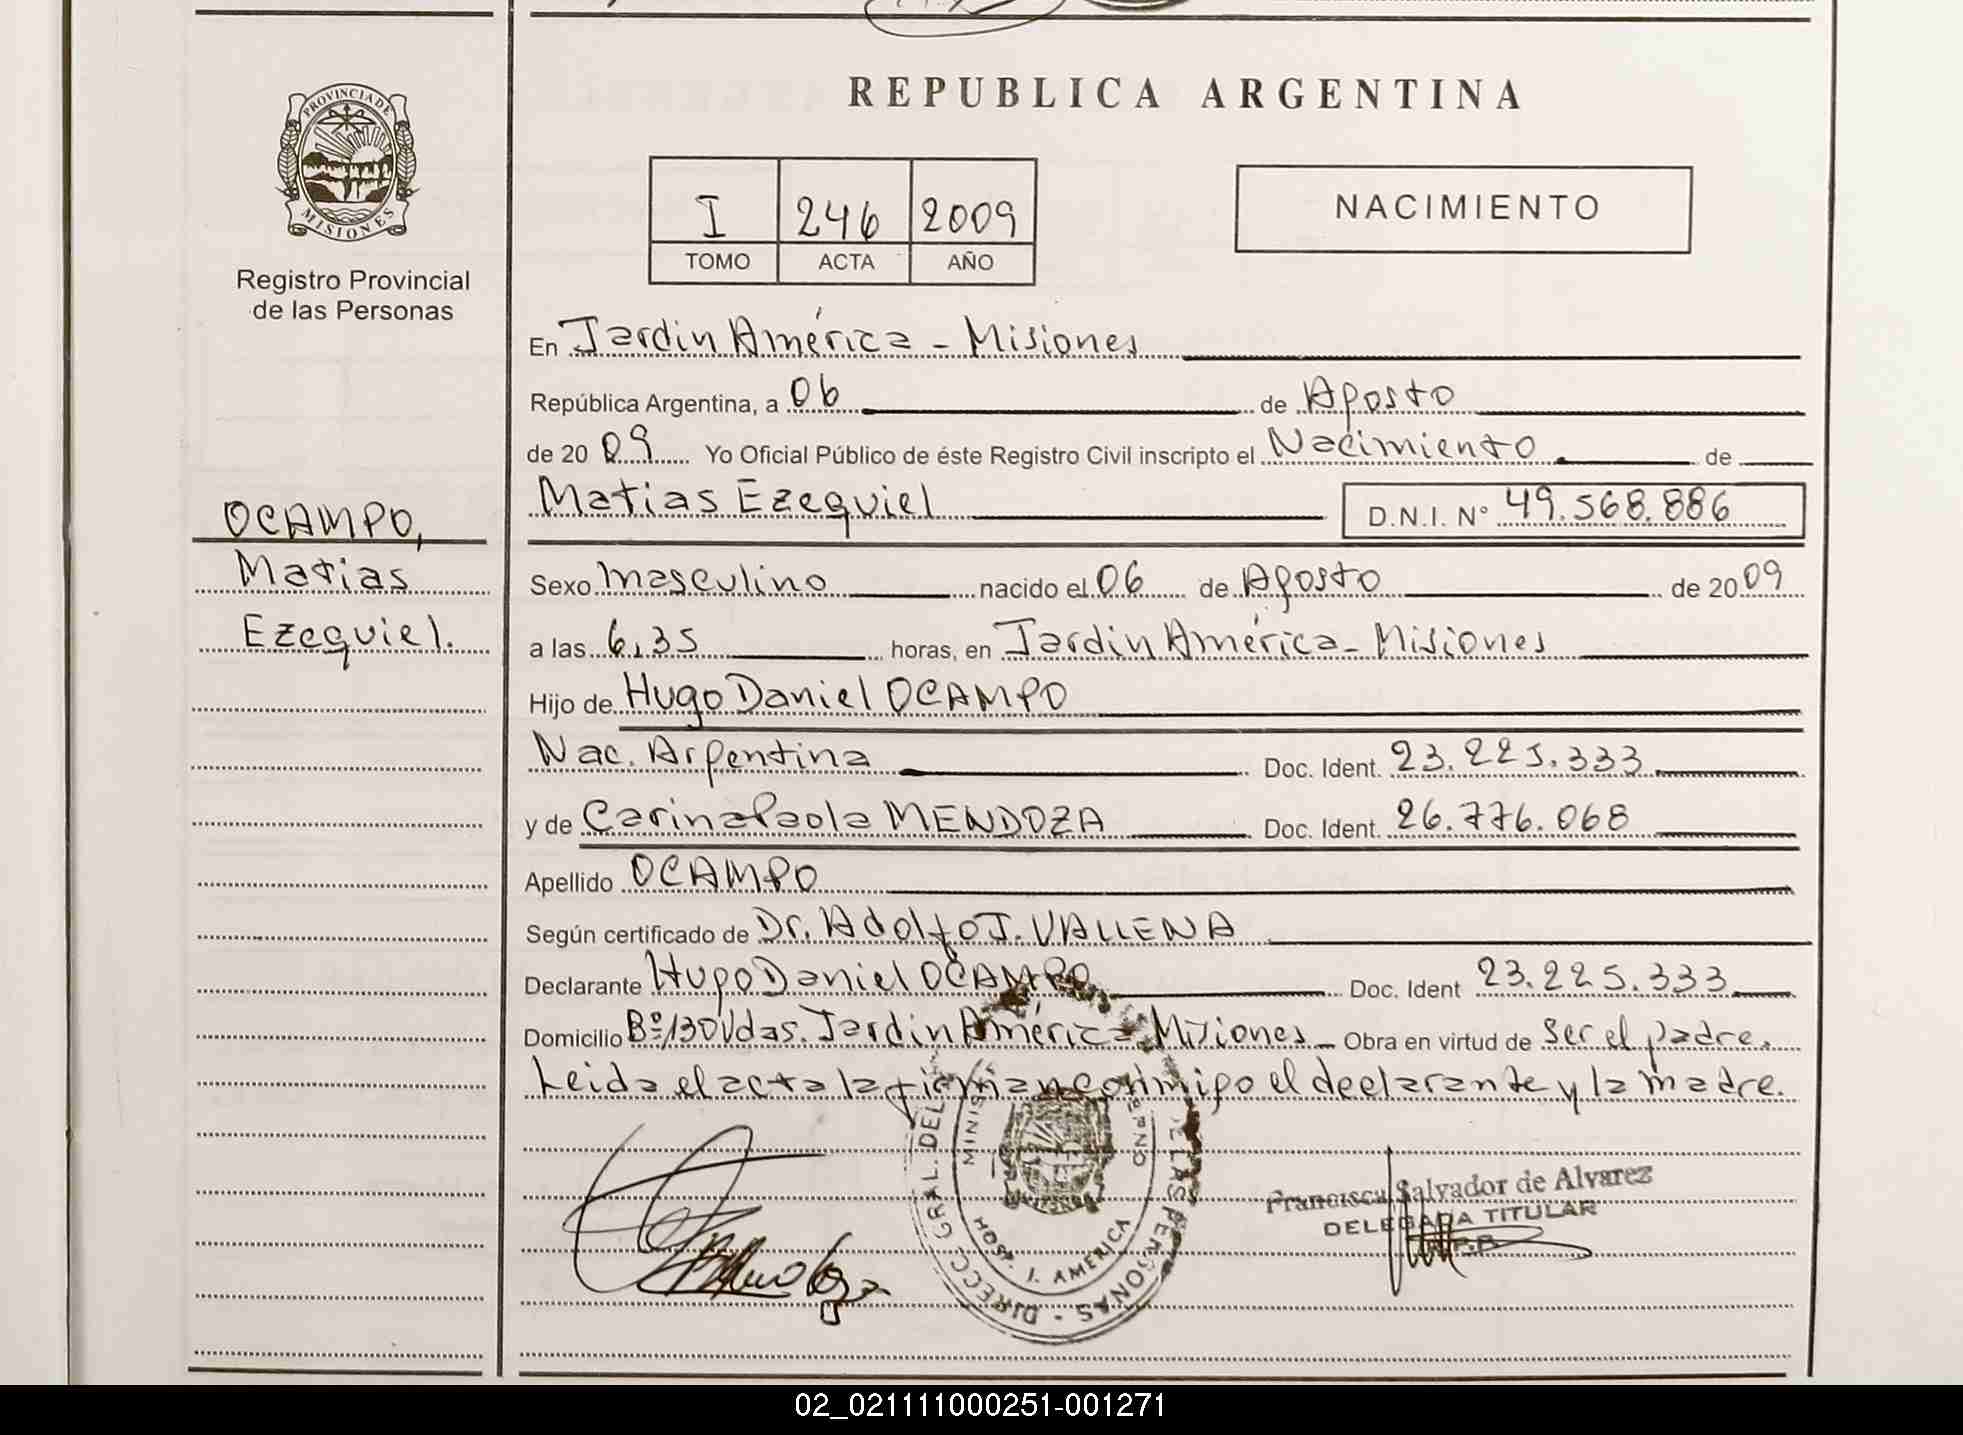 REPUBLICA ARGENTINA
PROVINCIA DE
MISIONES
Registro Provincial
de las Personas
I 246 2009
TOMO ACTA AÑO
NACIMIENTO
En Jardin América - Misiones
República Argentina, a 06 de Agosto
de 20 09 Yo Oficial Público de éste Registro Civil inscripto el Nacimiento de
Matias Ezequiel D.N.I. N° 49.568.886
OCAMPO,
Matias
Ezequiel.
Sexo masculino nacido el 06 de Agosto de 20 09
a las 6,35 horas, en Jardin América - Misiones
Hijo de Hugo Daniel OCAMPO
Nac. Argentina Doc. Ident. 23.225.333
y de Carina Paola MENDOZA Doc. Ident. 26.776.068
Apellido OCAMPO
Según certificado de Dr. Adolfo J. VALLENA
Declarante Hugo Daniel OCAMPO Doc. Ident 23.225.333
Domicilio Bº 130 Vdas. Jardin América - Misiones Obra en virtud de Ser el padre.
Leida el acta la firman conmigo el declarante y la madre.
DIRECC. GRAL. DEL DE LAS PERSONAS
HOSP. J. AMERICA
Francisca Salvador de Alvarez
DELEGADA TITULAR
02_021111000251-001271